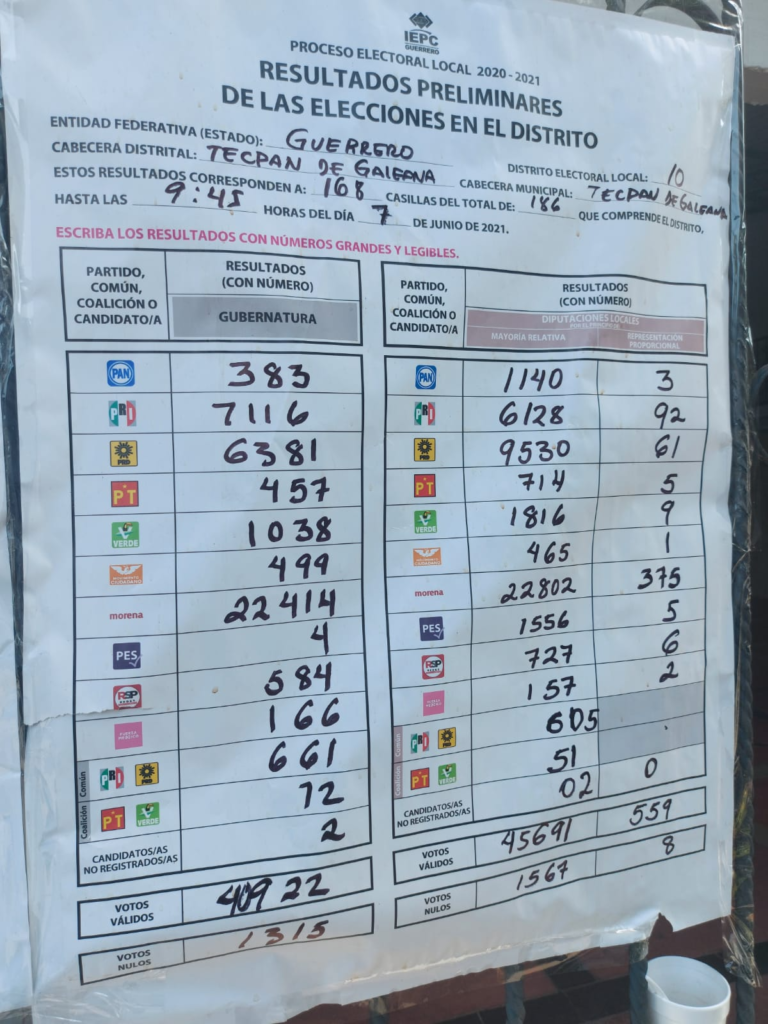 IEPC
GUERRERO
PROCESO ELECTORAL LOCAL 2020 - 2021
RESULTADOS PRELIMINARES
DE LAS ELECCIONES EN EL DISTRITO
ENTIDAD FEDERATIVA (ESTADO): GUERRERO
CABECERA DISTRITAL: TECPAN DE GALEANA DISTRITO ELECTORAL LOCAL: 10
ESTOS RESULTADOS CORRESPONDEN A: 168 CABECERA MUNICIPAL: TECPAN DE GALEANA
CASILLAS DEL TOTAL DE: 186 QUE COMPRENDE EL DISTRITO,
HASTA LAS 9:45 HORAS DEL DÍA 7 DE JUNIO DE 2021.
ESCRIBA LOS RESULTADOS CON NÚMEROS GRANDES Y LEGIBLES.
PARTIDO, COMÚN, COALICIÓN O CANDIDATO/A
RESULTADOS (CON NÚMERO)
GUBERNATURA
PAN 383
PRI 7116
PRD 6381
PT 457
VERDE 1038
MOVIMIENTO CIUDADANO 499
morena 22414
PES 4
RSP 584
166
Común PRI PRD 661
Coalición PT VERDE 72
CANDIDATOS/AS NO REGISTRADOS/AS 2
VOTOS VÁLIDOS 40922
VOTOS NULOS 1315
PARTIDO, COMÚN, COALICIÓN O CANDIDATO/A
RESULTADOS (CON NÚMERO)
DIPUTACIONES LOCALES
POR EL PRINCIPIO DE
MAYORÍA RELATIVA REPRESENTACIÓN PROPORCIONAL
PAN 1140 3
PRI 6128 92
PRD 9530 61
PT 714 5
VERDE 1816 9
MOVIMIENTO CIUDADANO 465 1
morena 22802 375
PES 1556 5
RSP 727 6
157 2
Común PRI PRD 605
Coalición PT VERDE 51
CANDIDATOS/AS NO REGISTRADOS/AS 02 0
VOTOS VÁLIDOS 45691 559
VOTOS NULOS 1567 8